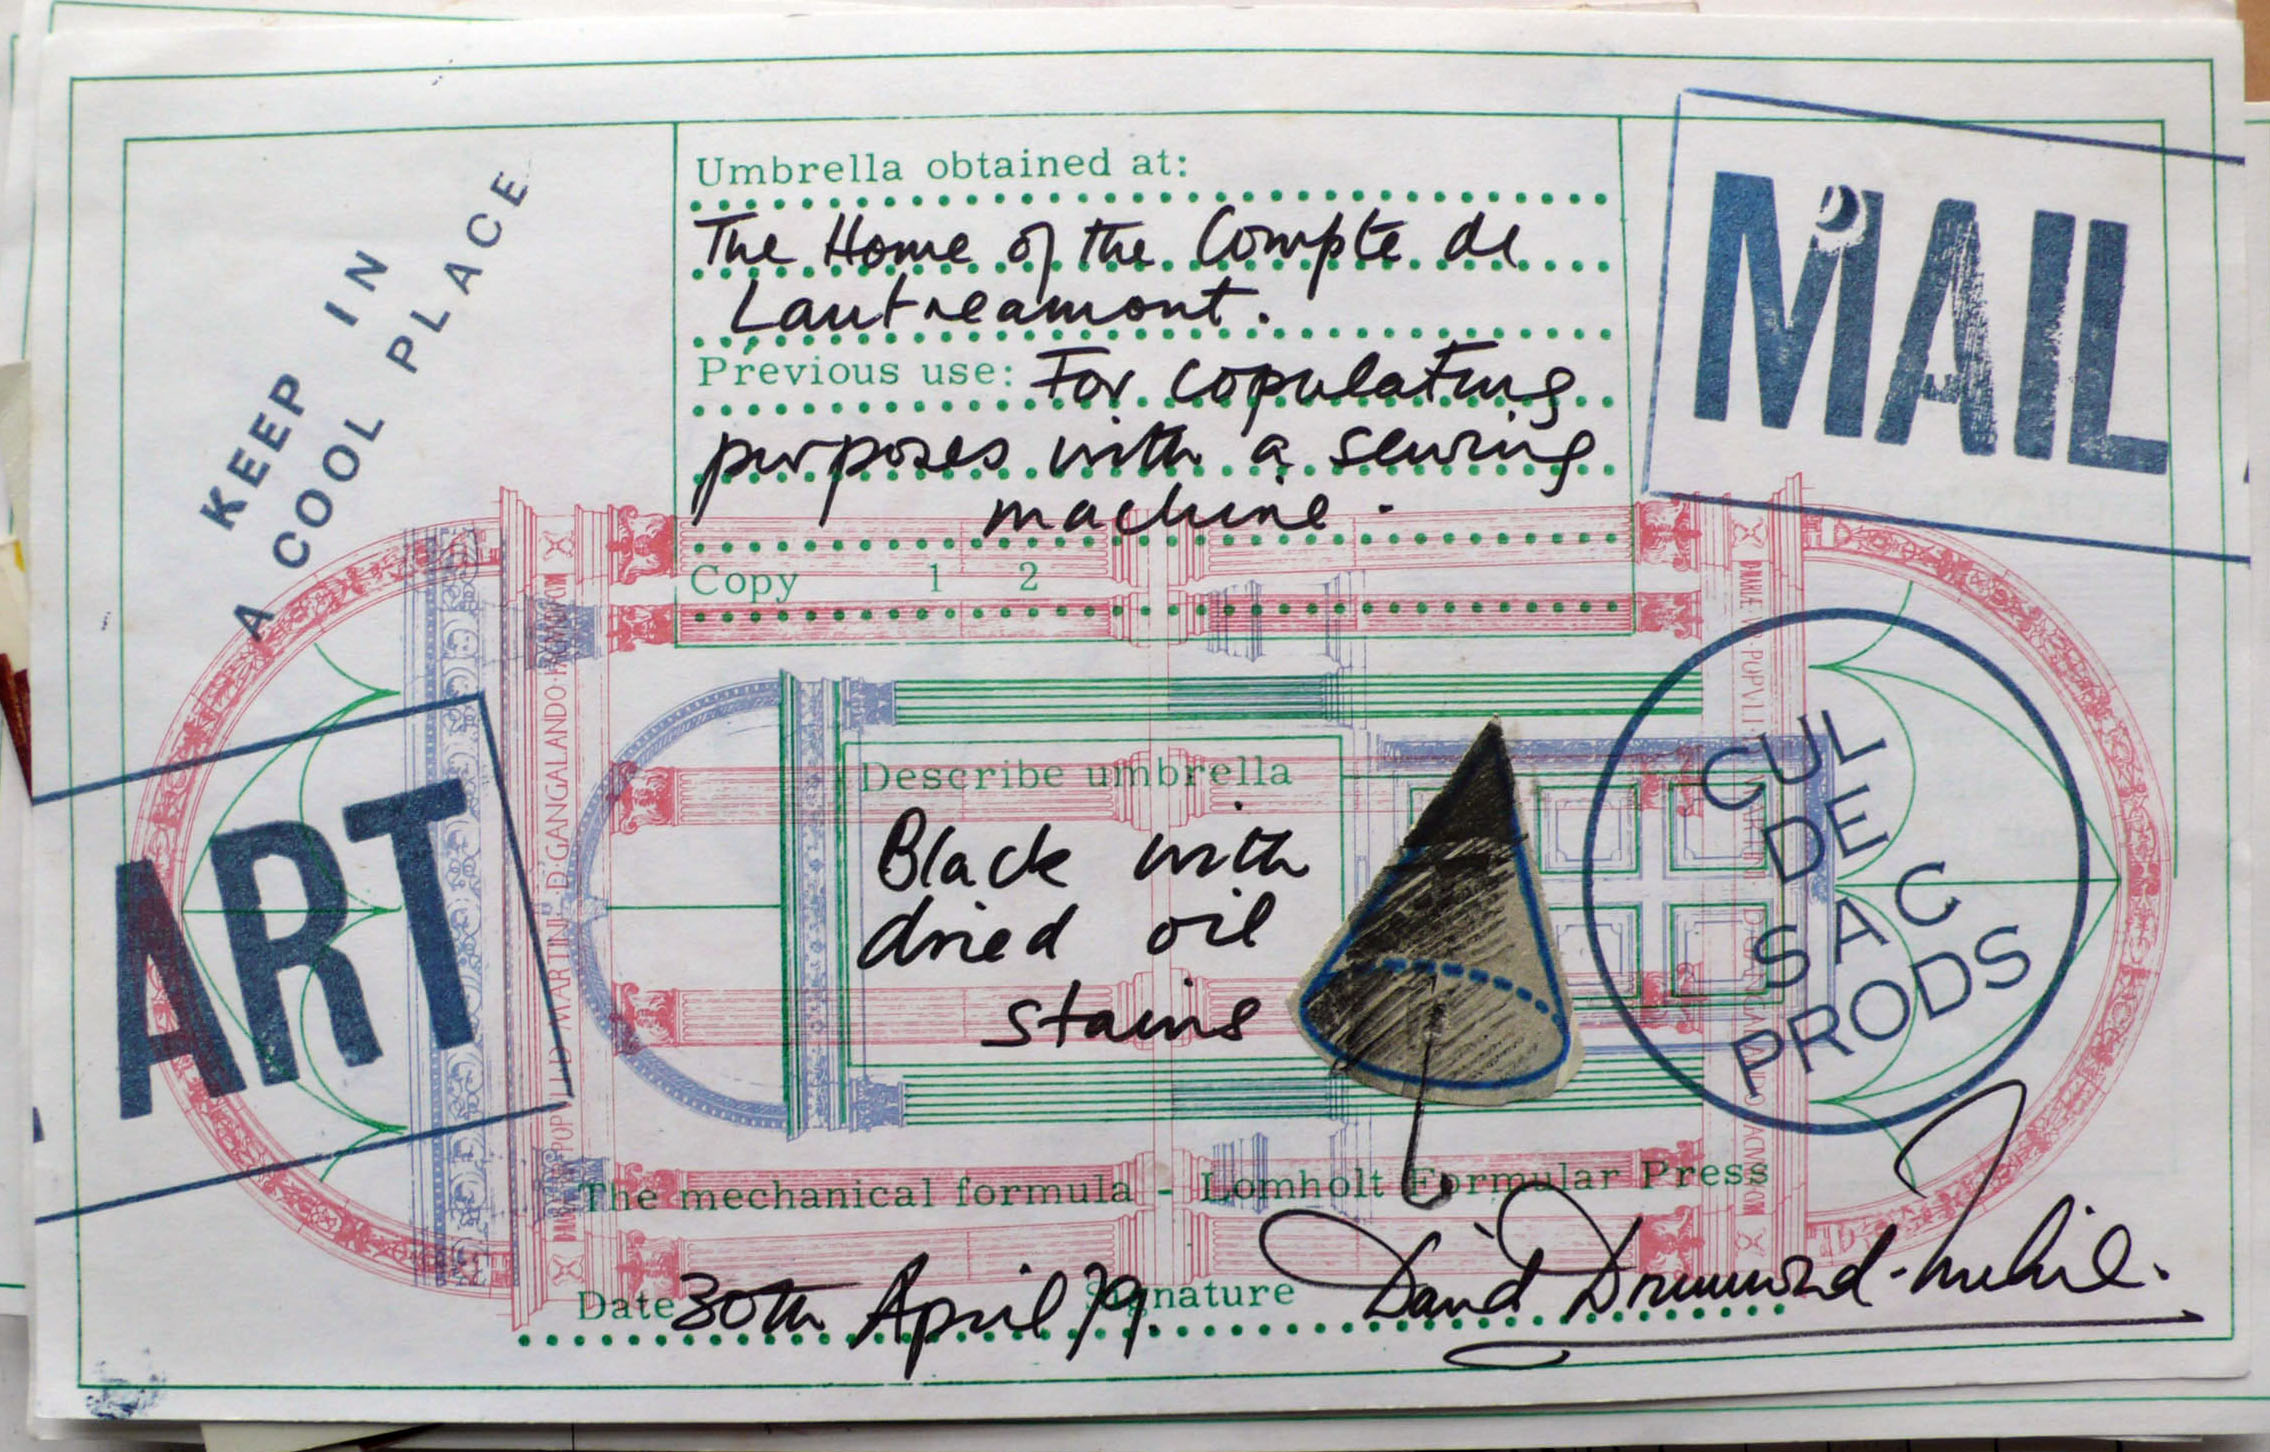 KEEP IN
A COOL PLACE
Umbrella obtained at:
The Home of the Compte de
Lautreamont.
Previous use: For copulating
purposes with a sewing
machine.
Copy 1 2
MAIL
ART
Describe umbrella
Black with
dried oil
stains
CUL
DE
SAC
PRODS
MARTINI·D·GANGALANDO·
The mechanical formula - Lomholt Formular Press
Date 30th April 79.
Signature David Drummond-